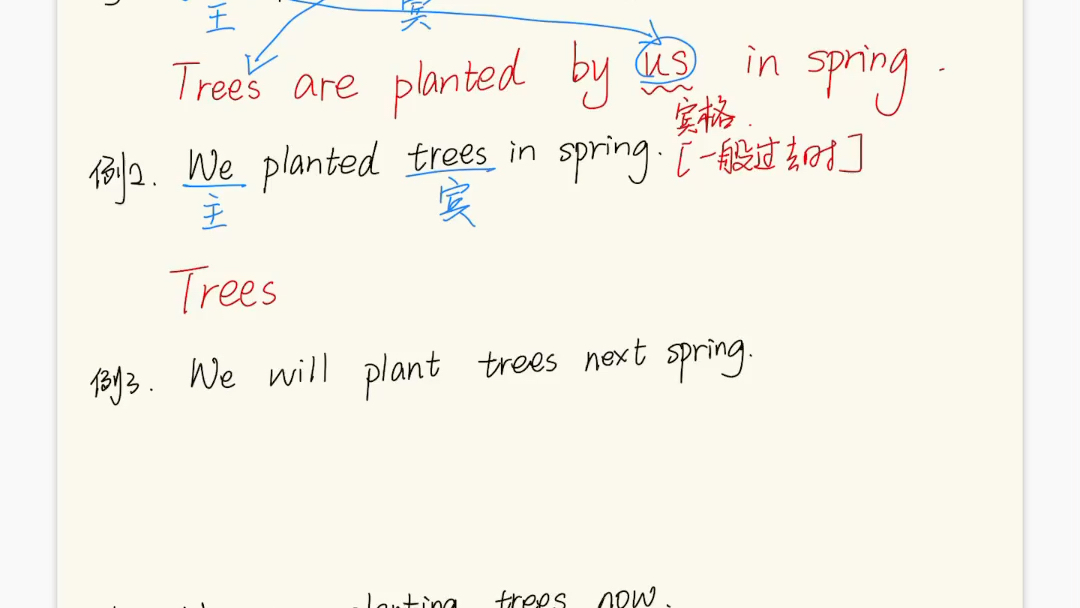 主 宾
Trees are planted by us in spring.
宾格.
例2. We planted trees in spring. [一般过去时]
主 宾
Trees
例3. We will plant trees next spring.
planting trees now.